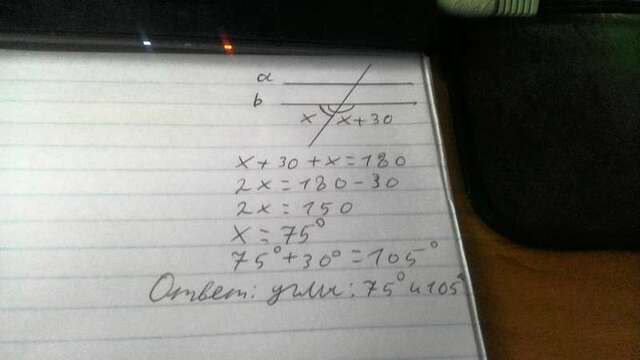 a
b
x x+30
x+30+x=180
2x=180-30
2x=150
x=75°
75°+30°=105°
Ответ: углы: 75° и 105°